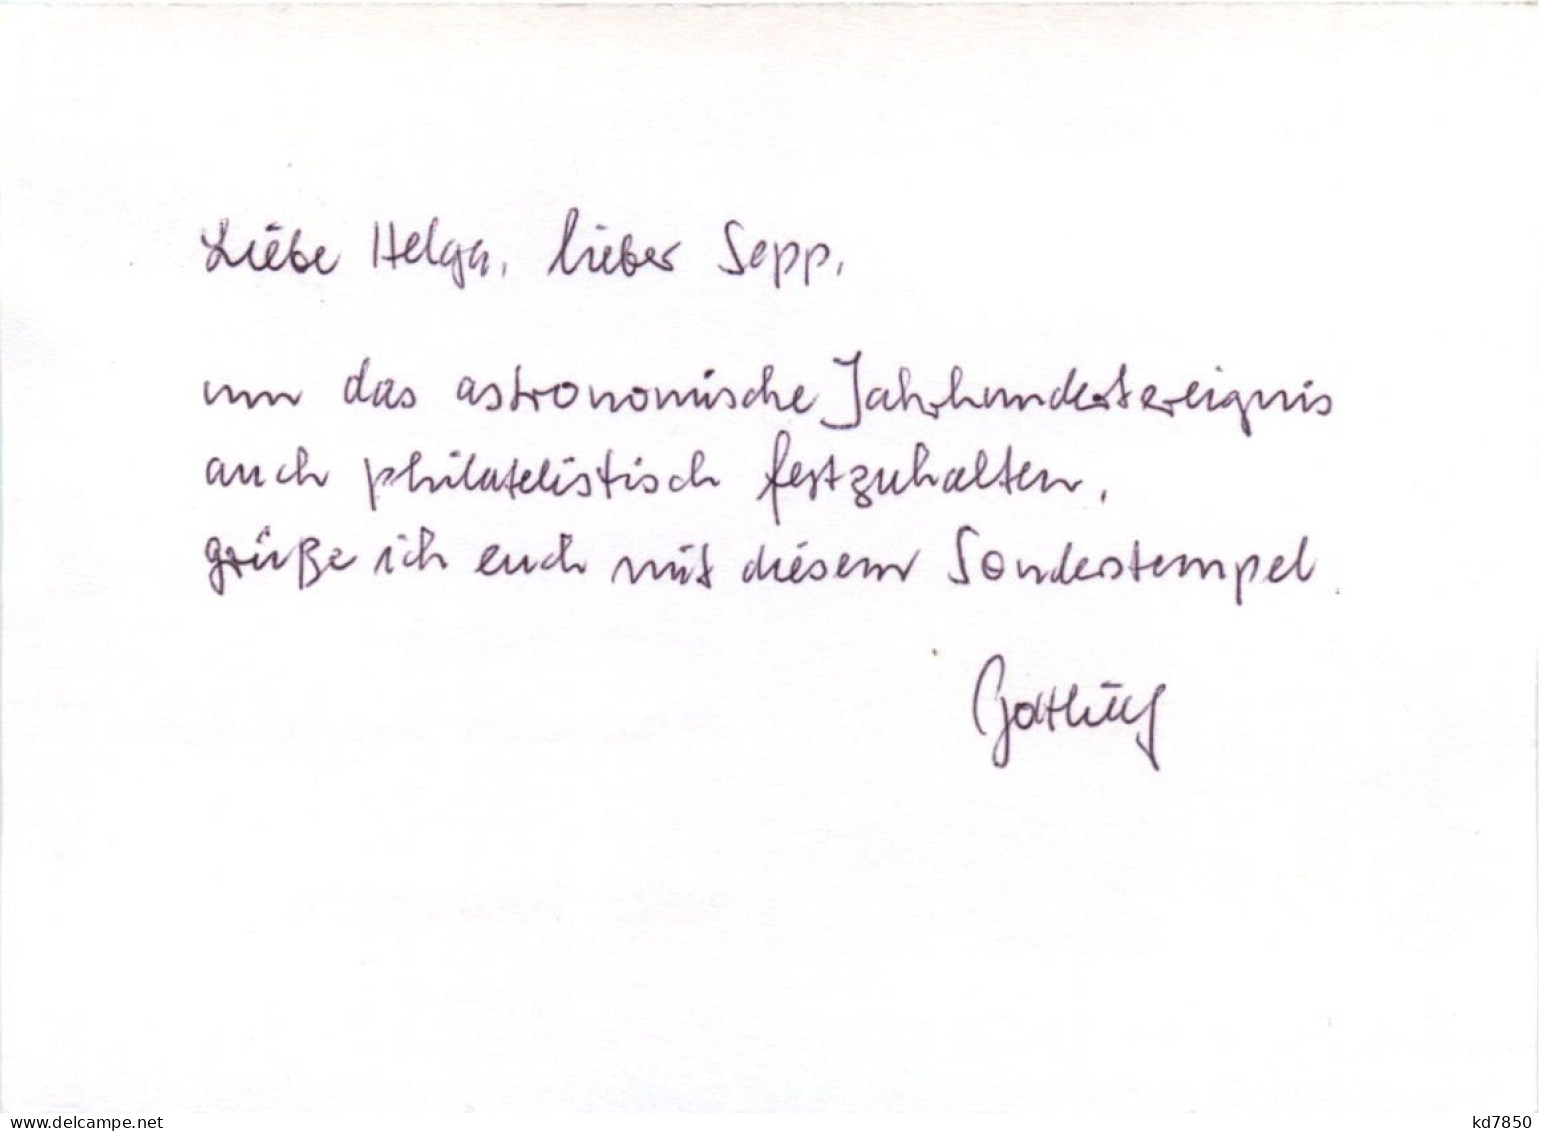 Liebe Helga, lieber Sepp,
um das astronomische Jahrhundertereignis
auch philatelistisch festzuhalten,
grüße ich euch mit diesem Sonderstempel.
www.delcampe.net
kd7850